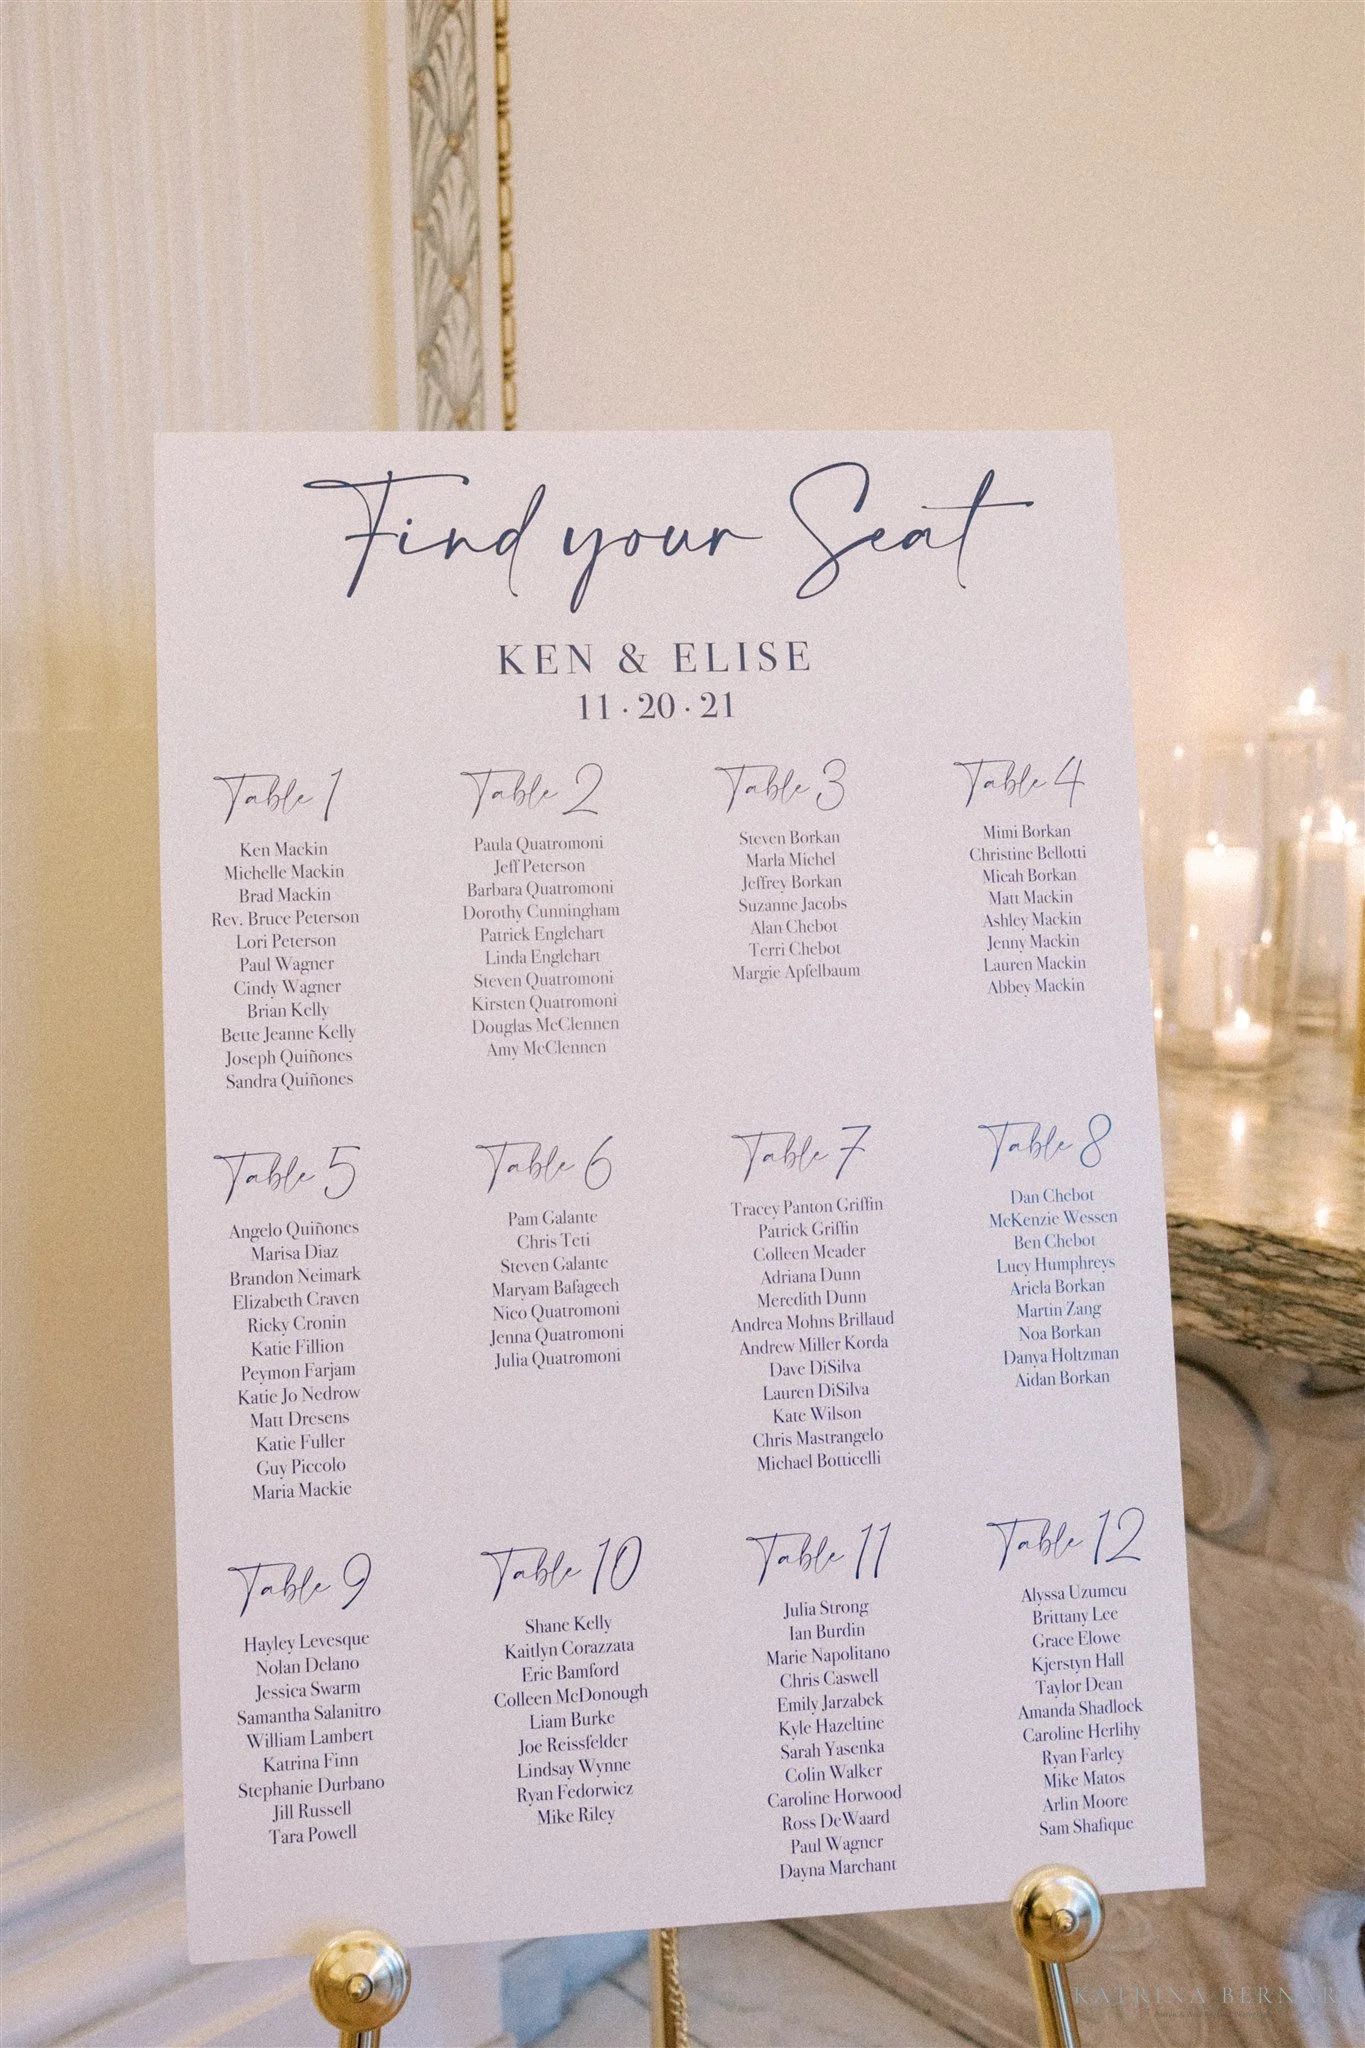 Find your Seat
KEN & ELISE
11·20·21
Table 1
Ken Mackin
Michelle Mackin
Brad Mackin
Rev. Bruce Peterson
Lori Peterson
Paul Wagner
Cindy Wagner
Brian Kelly
Bette Jeanne Kelly
Joseph Quiñones
Sandra Quiñones
Table 2
Paula Quatromoni
Jeff Peterson
Barbara Quatromoni
Dorothy Cunningham
Patrick Englehart
Linda Englehart
Steven Quatromoni
Kirsten Quatromoni
Douglas McClennen
Amy McClennen
Table 3
Steven Borkan
Marla Michel
Jeffrey Borkan
Suzanne Jacobs
Alan Chebot
Terri Chebot
Margie Apfelbaum
Table 4
Mimi Borkan
Christine Bellotti
Micah Borkan
Matt Mackin
Ashley Mackin
Jenny Mackin
Lauren Mackin
Abbey Mackin
Table 5
Angelo Quiñones
Marisa Diaz
Brandon Neimark
Elizabeth Craven
Ricky Cronin
Katie Fillion
Peymon Farjam
Katie Jo Nedrow
Matt Dresens
Katie Fuller
Guy Piccolo
Maria Mackie
Table 6
Pam Galante
Chris Teti
Steven Galante
Maryam Bafageeh
Nico Quatromoni
Jenna Quatromoni
Julia Quatromoni
Table 7
Tracey Panton Griffin
Patrick Griffin
Colleen Meader
Adriana Dunn
Meredith Dunn
Andrea Mohns Brillaud
Andrew Miller Korda
Dave DiSilva
Lauren DiSilva
Kate Wilson
Chris Mastrangelo
Michael Botticelli
Table 8
Dan Chebot
McKenzie Wessen
Ben Chebot
Lucy Humphreys
Ariela Borkan
Martin Zang
Noa Borkan
Danya Holtzman
Aidan Borkan
Table 9
Hayley Levesque
Nolan Delano
Jessica Swarm
Samantha Salanitro
William Lambert
Katrina Finn
Stephanie Durbano
Jill Russell
Tara Powell
Table 10
Shane Kelly
Kaitlyn Corazzata
Eric Bamford
Colleen McDonough
Liam Burke
Joe Reissfelder
Lindsay Wynne
Ryan Fedorwicz
Mike Riley
Table 11
Julia Strong
Ian Burdin
Marie Napolitano
Chris Caswell
Emily Jarzabek
Kyle Hazeltine
Sarah Yasenka
Colin Walker
Caroline Horwood
Ross DeWaard
Paul Wagner
Dayna Marchant
Table 12
Alyssa Uzumcu
Brittany Lee
Grace Elowe
Kjerstyn Hall
Taylor Dean
Amanda Shadlock
Caroline Herlihy
Ryan Farley
Mike Matos
Arlin Moore
Sam Shafique
KATRINA BERNAR